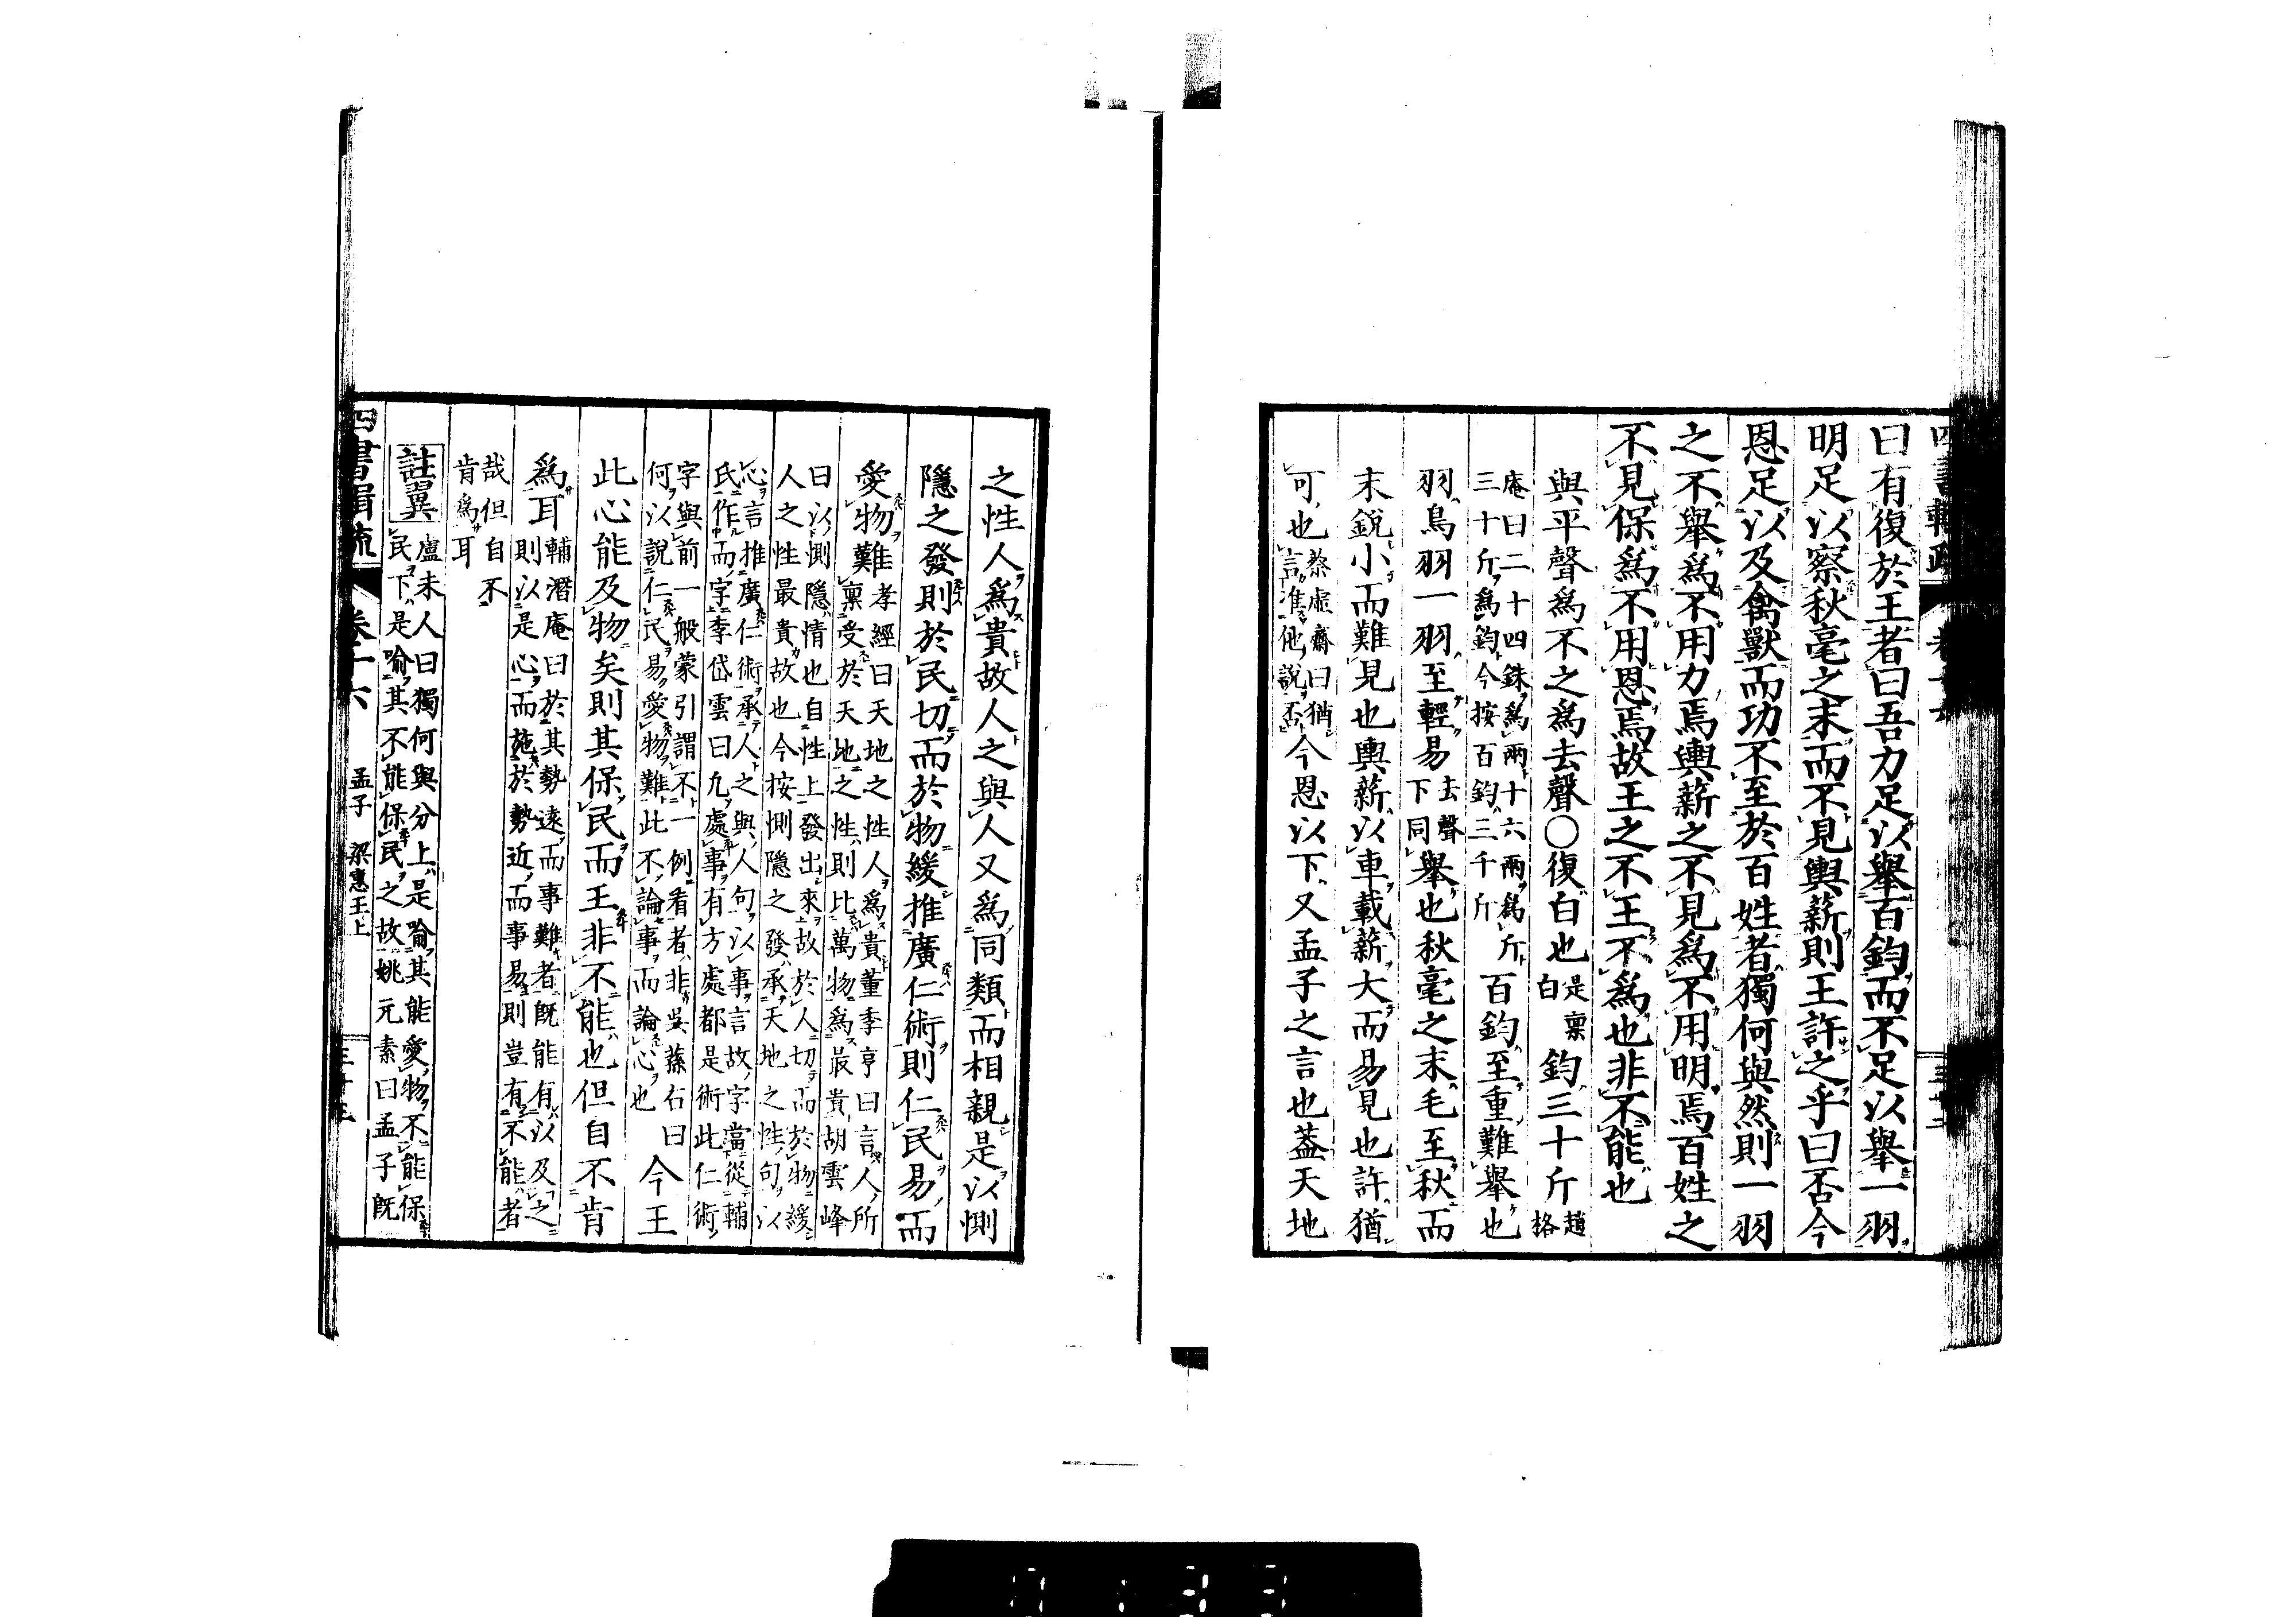 四書輯疏 卷十六 三十二
曰有復於王者曰吾力足以舉百鈞而不足以舉一羽
明足以察秋毫之末而不見輿薪則王許之乎曰否今
恩足以及禽獸而功不至於百姓者獨何與然則一羽
之不舉爲不用力焉輿薪之不見爲不用明焉百姓之
不見保爲不用恩焉故王之不王不爲也非不能也
與平聲爲不之爲去聲○復白也是稟白鈞三十斤趙格
庵曰二十四銖爲兩十六兩爲斤三十斤爲鈞今按百鈞三千斤百鈞至重難舉也
羽鳥羽一羽至輕易去聲下同舉也秋毫之末毛至秋而
末銳小而難見也輿薪以車載薪大而易見也許猶
可也蔡虛齋曰猶言准他說否今恩以下又孟子之言也蓋天地
之性人爲貴故人之與人又爲同類而相親是以惻
隱之發則於民切而於物緩推廣仁術則仁民易而
愛物難孝經曰天地之性人爲貴董季亨曰言人所稟受於天地之性則比萬物爲最貴胡雲峰
曰以惻隱情也自性上發出來故於人切而於物緩人之性最貴故也今按惻隱之發承天地之性句以
心言推廣仁術承人之與人句以事言故字當從輔氏作而字李岱雲曰九處事有方處都是術此仁術
字與前一般蒙引謂不一例看者非吳蓀右曰何以說仁民易愛物難此不論事而論心也今王
此心能及物矣則其保民而王非不能也但自不肯
爲耳輔潛庵曰於其勢遠而事難者旣能有以及之則以是心而施於勢近而事易則豈有不能者
哉但自不肯爲耳
註翼盧未人曰獨何與分上是喩其能愛物不能保民下是喩其不能保民之故姚元素曰孟子旣
四書輯疏 卷十六 孟子 梁惠王上 三十三